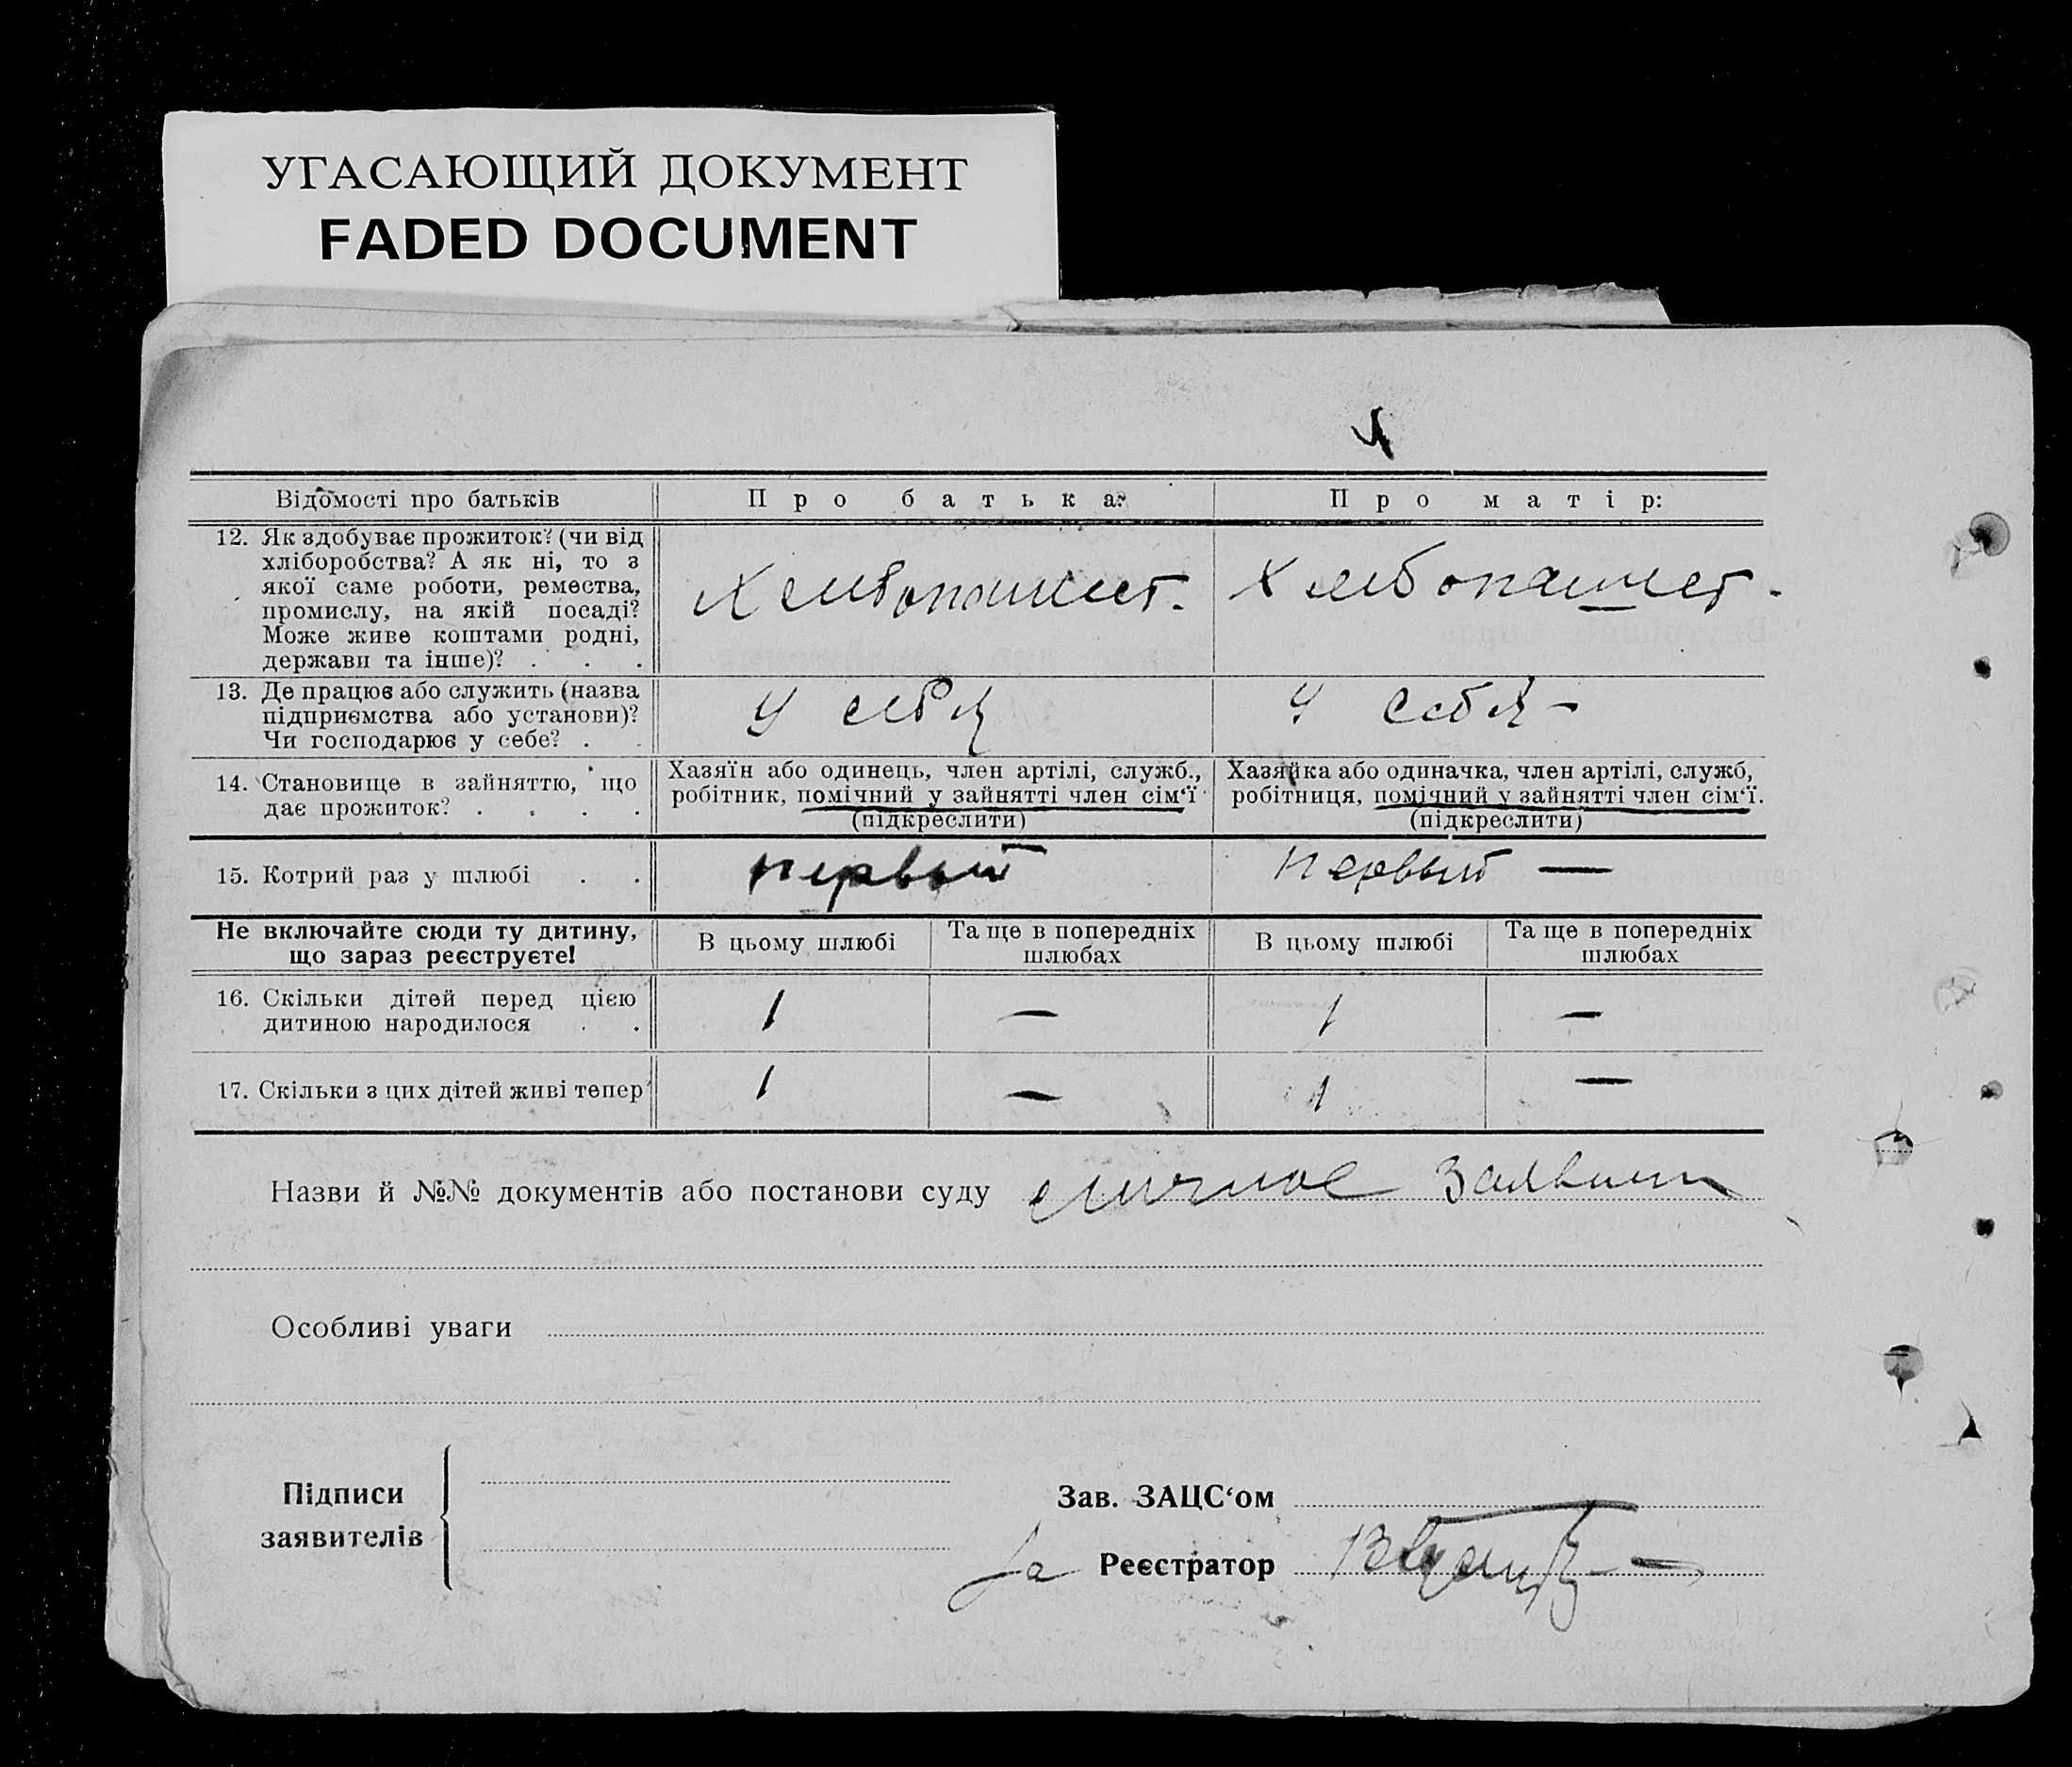 УГАСАЮЩИЙ ДОКУМЕНТ
FADED DOCUMENT
Відомості про батьків
Про батька:
Про матір:
12. Як здобуває прожиток? (чи від
хліборобства? А як ні, то з
якої саме роботи, ремества,
промислу, на якій посаді?
Може живе коштами родні,
держави та інше)? . . .
Хлебопашест.
Хлебопашест.
13. Де працює або служить (назва
підприємства або установи)?
Чи господарює у себе? . .
У себя
У себя —
14. Становище в зайняттю, що
дає прожиток? . . . .
Хазяїн або одинець, член артілі, служб.,
робітник, помічний у зайнятті член сім‘ї
(підкреслити)
Хазяйка або одиначка, член артілі, служб,
робітниця, помічний у зайнятті член сім‘ї.
(підкреслити)
15. Котрий раз у шлюбі . .
первый
первый —
Не включайте сюди ту дитину,
що зараз реєструєте!
В цьому шлюбі
Та ще в попередніх
шлюбах
В цьому шлюбі
Та ще в попередніх
шлюбах
16. Скільки дітей перед цією
дитиною народилося . .
1
—
1
—
17. Скільки з цих дітей живі тепер
1
—
1
—
Назви й №№ документів або постанови суду личное
Особливі уваги
Підписи
заявителів
Зав. ЗАЦС‘ом
За Реєстратор